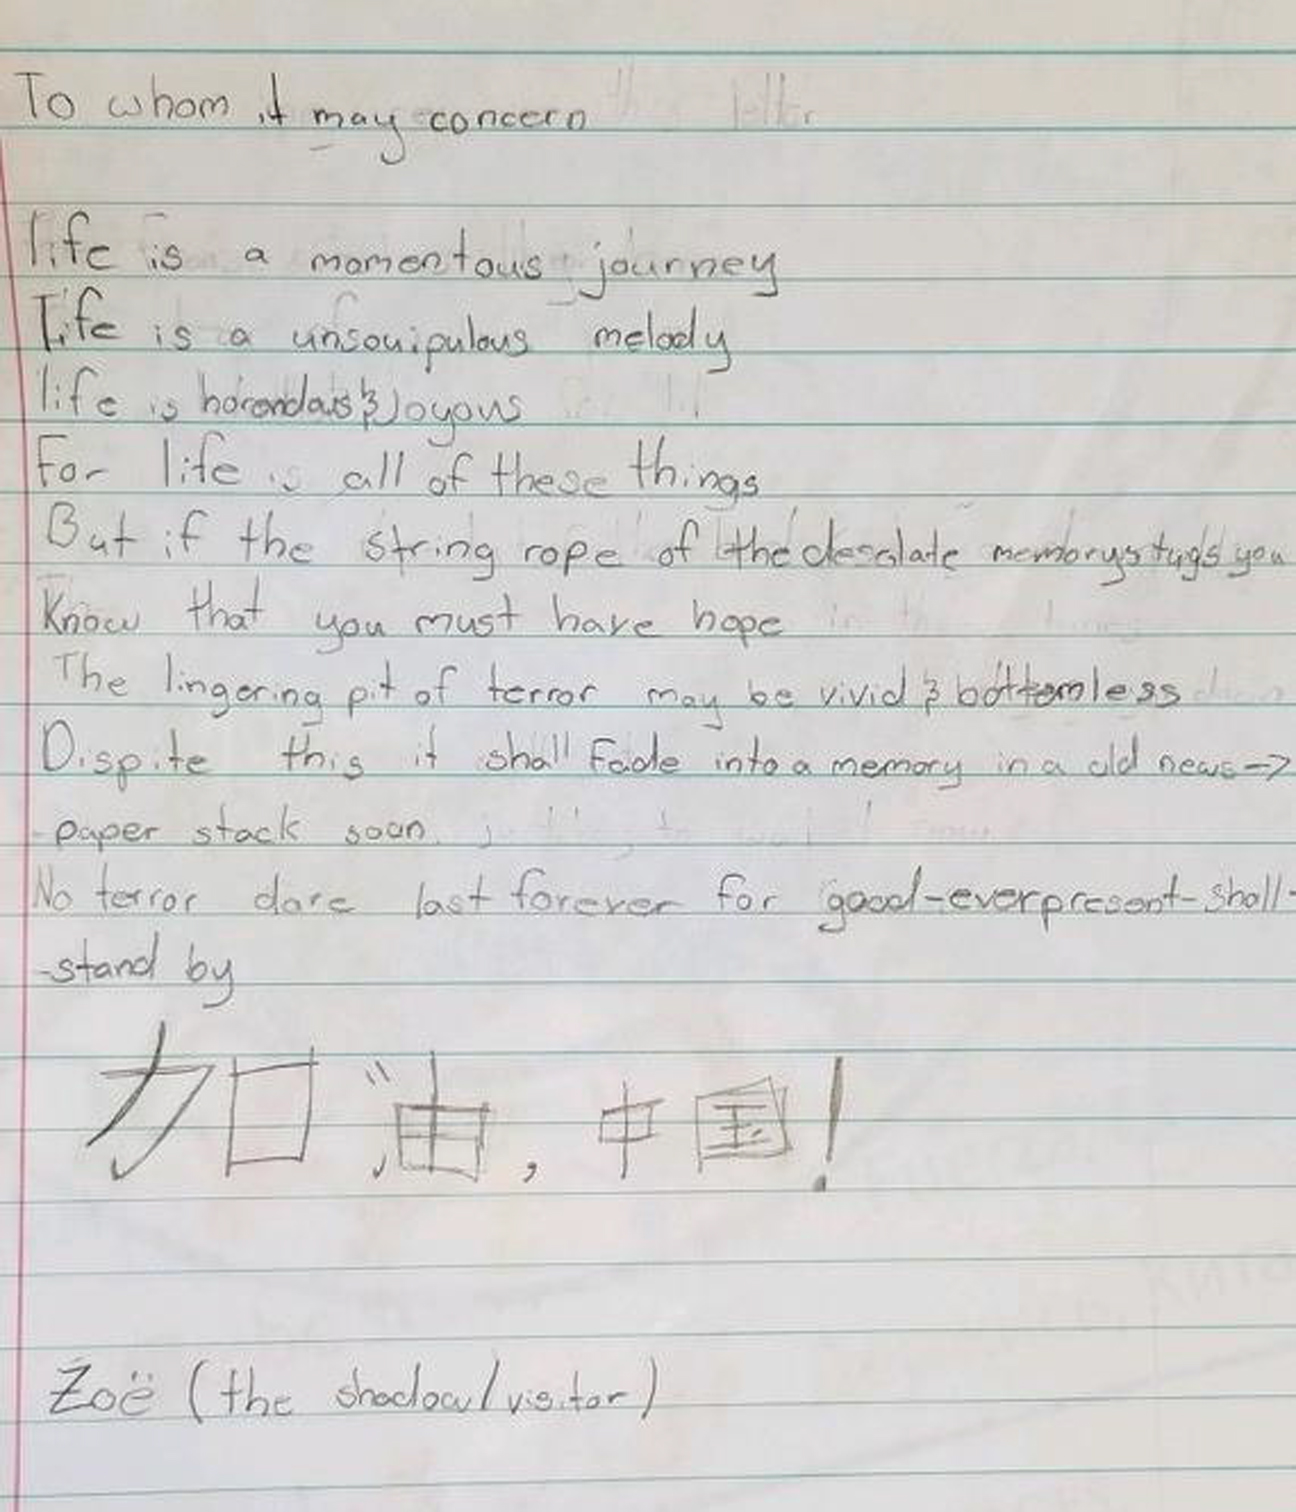 To whom it may concern
life is a momentous journey
Life is a unsouipulous melody
life is horondous & Joyous
For life is all of these things
But if the string rope of the desolate memorys tugs you
Know that you must have hope
The lingering pit of terror may be vivid & bottomless
Dispite this it shall fade into a memory in a old news->
-paper stack soon
No terror dare last forever for good-everpresent-shall-
-stand by
加油,中国!
Zoë (the shadow/visitor)